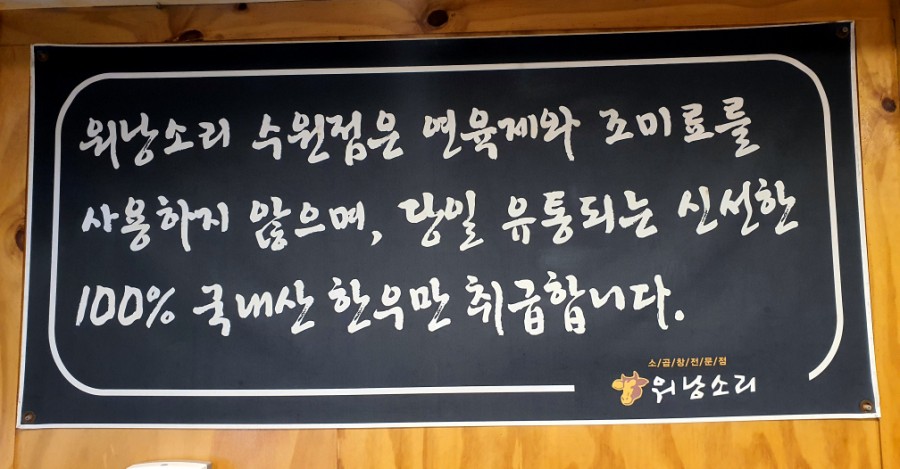 워낭소리 수원점은 연육제와 조미료를
사용하지 않으며, 당일 유통되는 신선한
100% 국내산 한우만 취급합니다.
소/곱/창/전/문/점
워낭소리